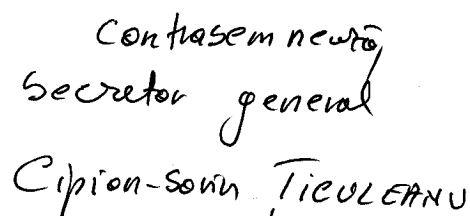 Contrasemnează,
Secretar general
Ciprian-Sorin ȚICULEANU